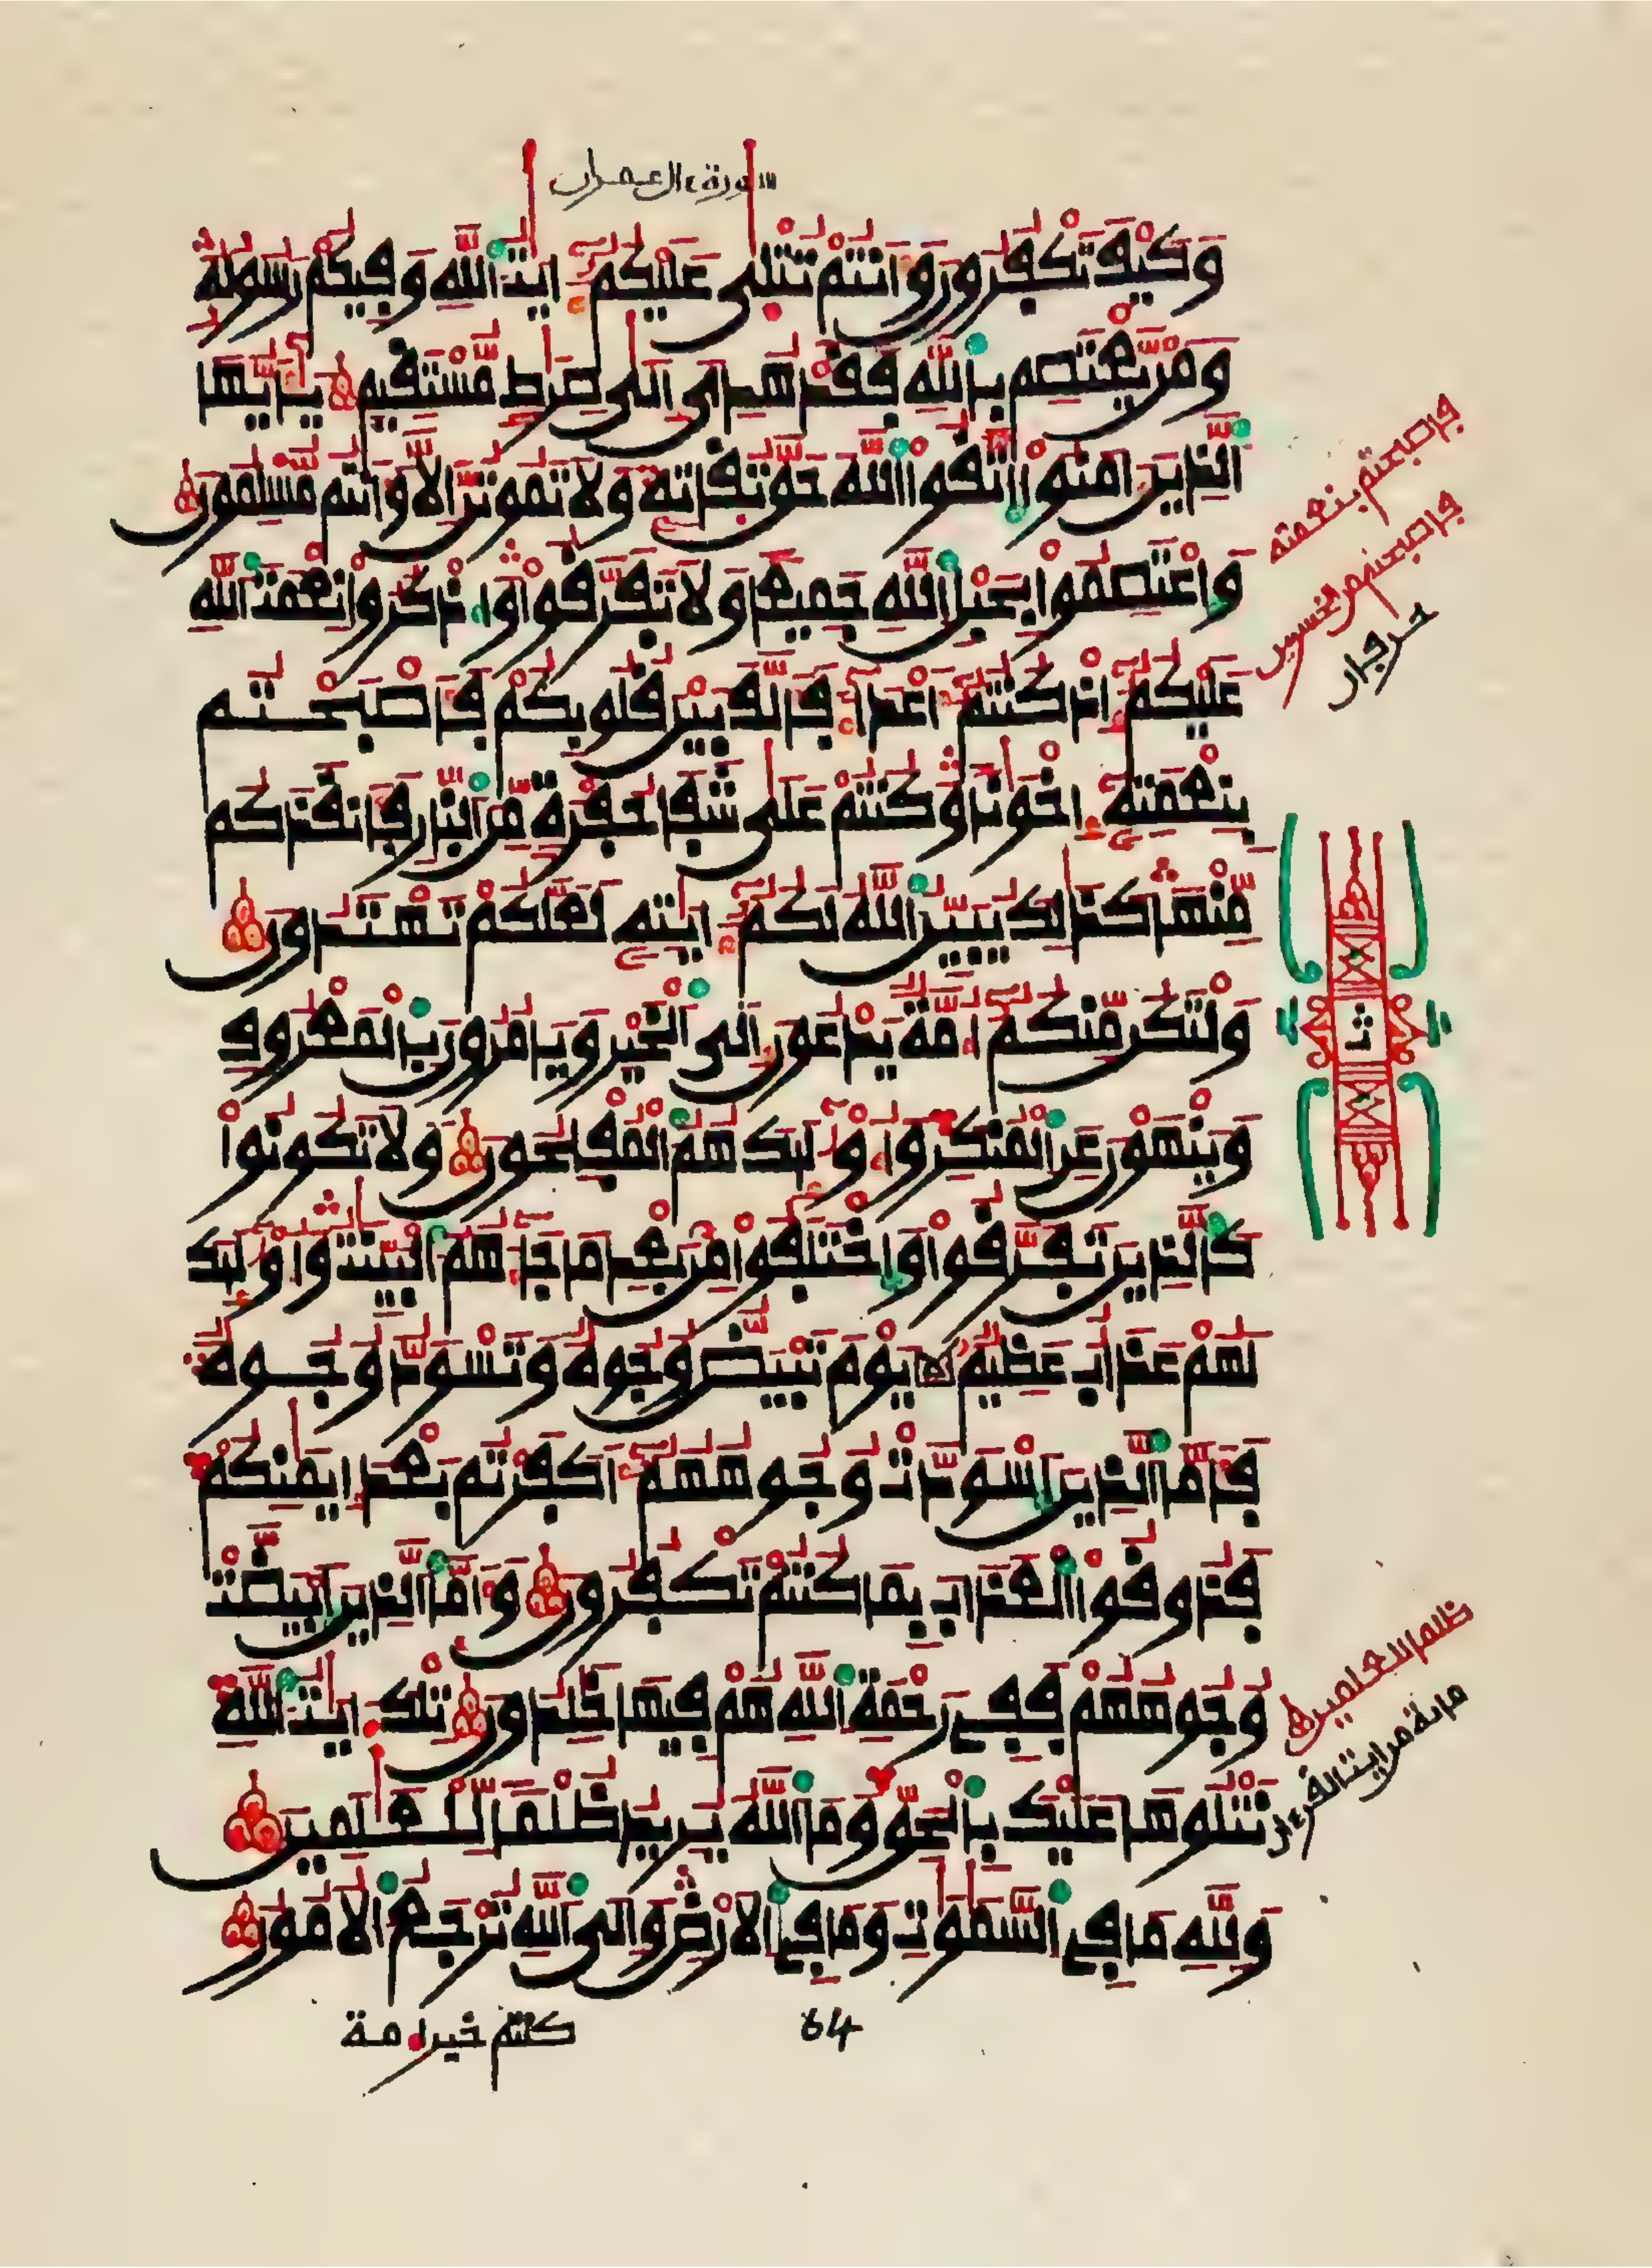 سورة ءال عمران
وَكَيْفَ تَكْفُرُونَ وَأَنتُمْ تُتْلَىٰ عَلَيْكُمُۥٓ ءَايَٰتُ ٱللَّهِ وَفِيكُمْ رَسُولُهُۥ
وَمَنْ يَّعْتَصِم بِٱللَّهِ فَقَدْ هُدِىَ إِلَىٰ صِرَٰطٍ مُّسْتَقِيمٍ يَٰٓأَيُّهَا
ٱلذِينَ ءَامَنُوا ٱتَّقُوا ٱللَّهَ حَقَّ تُقَاتِهِۦ وَلَا تَمُوتُنَّ إِلَّا وَأَنتُم مُّسْلِمُونَ
وَٱعْتَصِمُوا بِحَبْلِ ٱللَّهِ جَمِيعًا وَلَا تَفَرَّقُوا وَٱذْكُرُوا نِعْمَتَ ٱللَّهِ
عَلَيْكُمُۥٓ إِذْ كُنتُمُۥٓ أَعْدَآءً فَأَلَّفَ بَيْنَ قُلُوبِكُمْ فَأَصْبَحْتُم
بِنِعْمَتِهِۦٓ إِخْوَٰنًا وَكُنتُمْ عَلَىٰ شَفَا حُفْرَةٍ مِّنَ ٱلنَّارِ فَأَنقَذَكُم
مِّنْهَا كَذَٰلِكَ يُبَيِّنُ ٱللَّهُ لَكُمُۥٓ ءَايَٰتِهِۦ لَعَلَّكُمْ تَهْتَدُونَ
وَلْتَكُن مِّنكُمُۥٓ أُمَّةٌ يَدْعُونَ إِلَى ٱلْخَيْرِ وَيَأْمُرُونَ بِٱلْمَعْرُوفِ
وَيَنْهَوْنَ عَنِ ٱلْمُنكَرِ وَأُو۟لَٰٓئِكَ هُمُ ٱلْمُفْلِحُونَ وَلَا تَكُونُوا
كَٱلذِينَ تَفَرَّقُوا وَٱخْتَلَفُوا مِنۢ بَعْدِ مَا جَآءَهُمُ ٱلْبَيِّنَٰتُ وَأُو۟لَٰٓئِكَ
لَهُمْ عَذَابٌ عَظِيمٌ يَوْمَ تَبْيَضُّ وُجُوهٌ وَتَسْوَدُّ وُجُوهٌ
فَأَمَّا ٱلذِينَ ٱسْوَدَّتْ وُجُوهُهُمُۥٓ أَكَفَرْتُم بَعْدَ إِيمَٰنِكُمْ
فَذُوقُوا ٱلْعَذَابَ بِمَا كُنتُمْ تَكْفُرُونَ وَأَمَّا ٱلذِينَ ٱبْيَضَّتْ
وُجُوهُهُمْ فَفِى رَحْمَةِ ٱللَّهِ هُمْ فِيهَا خَٰلِدُونَ تِلْكَ ءَايَٰتُ ٱللَّهِ
نَتْلُوهَا عَلَيْكَ بِٱلْحَقِّ وَمَا ٱللَّهُ يُرِيدُ ظُلْمًا لِّلْعَٰلَمِينَ
وَلِلَّهِ مَا فِى ٱلسَّمَٰوَٰتِ وَمَا فِى ٱلْأَرْضِ وَإِلَى ٱللَّهِ تُرْجَعُ ٱلْأُمُورُ
فاصبحتم بنعمته
فاصبحتم من الخسرين
ثا
ظلما للعلمين
64
كنتم خير أمة